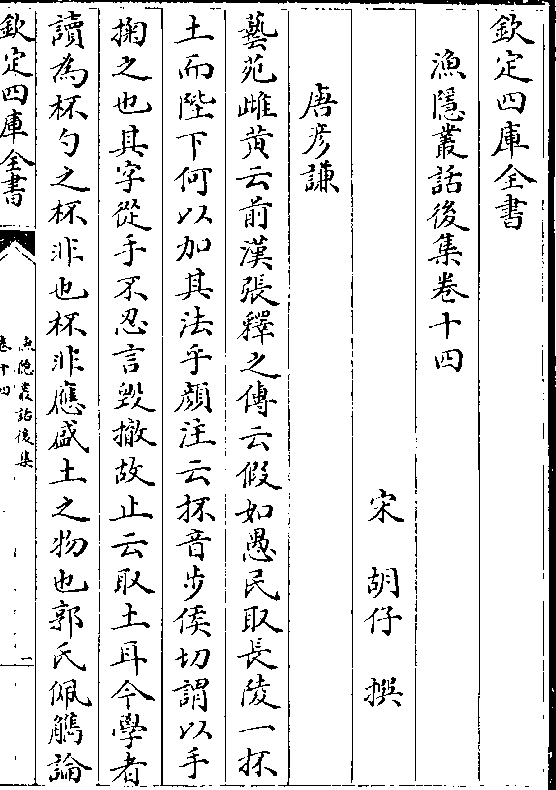 欽定四庫全書
漁隱叢話後集卷十四
宋 胡仔 撰
唐彦謙
藝苑雌黄云前漢張釋之傳云假如愚民取長陵一抔
土而陛下何以加其法乎顔注云抔音步侯切謂以手
掬之也其字從手不忍言毁撤故止云取土耳今學者
讀為杯勺之杯非也杯非應盛土之物也郭氏佩觿論
欽定四庫全書
漁隱叢話後集
卷十四
一